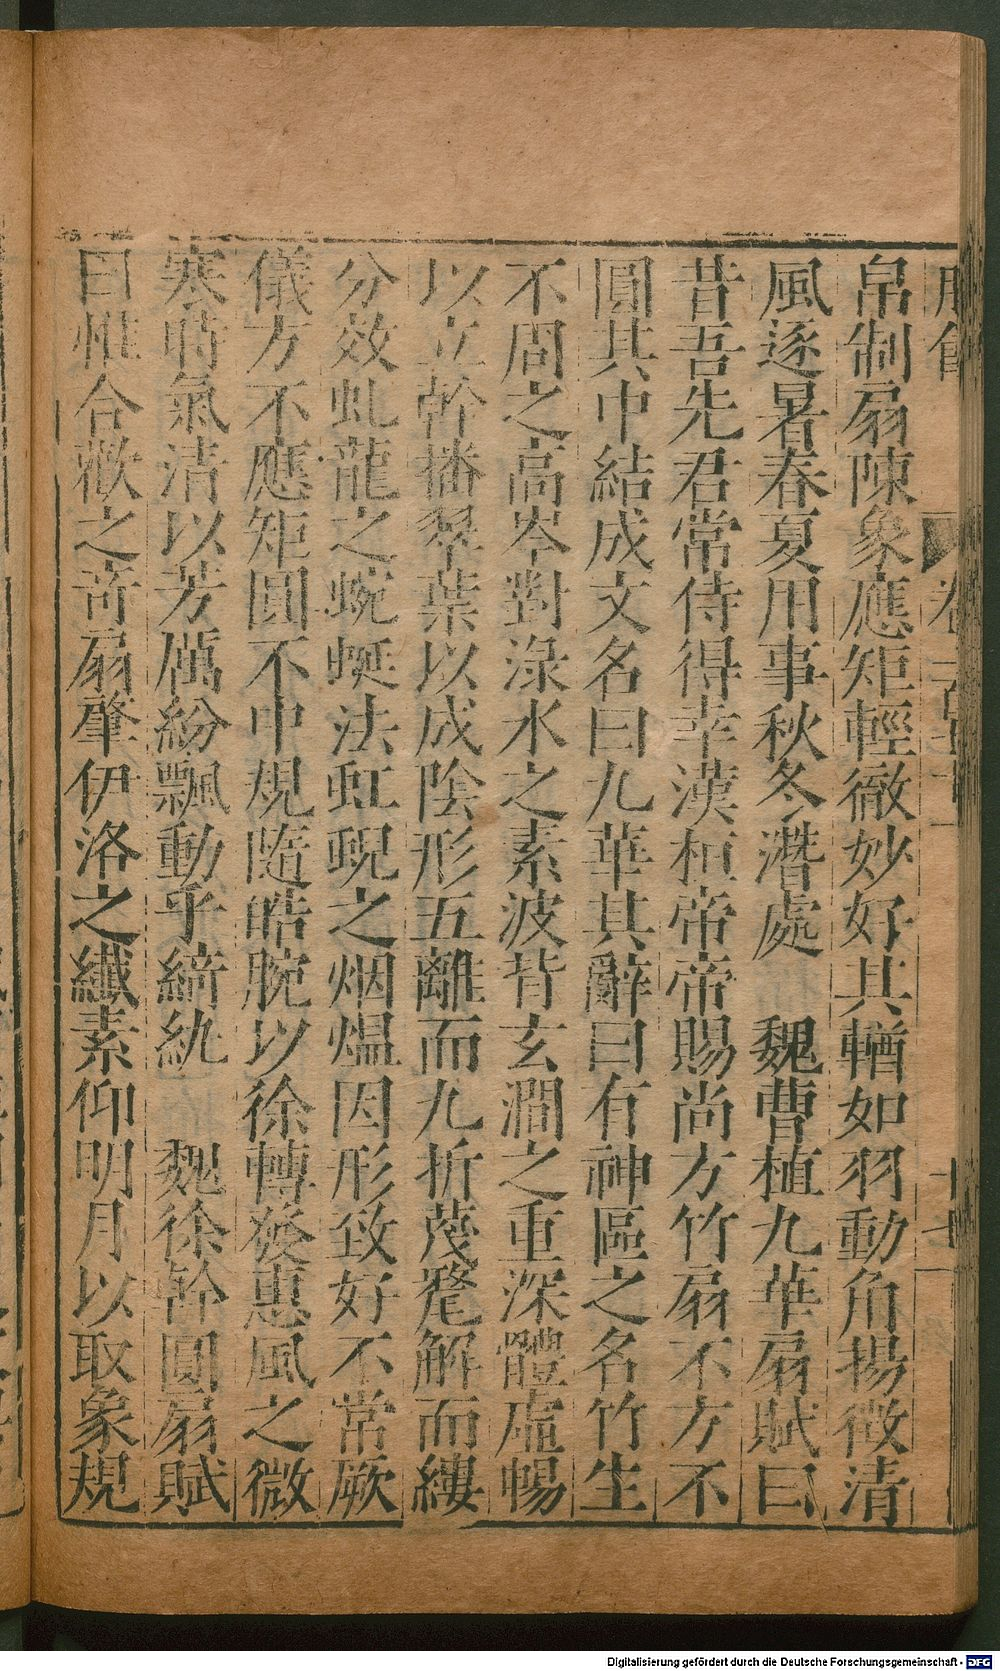 帛制扇陳象應矩輕徹妙好其輶如羽動角揚徵清
風逐暑春夏用事秋冬潛處　魏曹植九華扇賦曰
昔吾先君常侍得幸漢桓帝帝賜尚方竹扇不方不
圓其中結成文名曰九華其辭曰有神區之名竹生
不周之高岑對淥水之素波背玄澗之重深體虛暢
以立幹播翠葉以成陰形五離而九折蔑氂解而縷
分效虬龍之蜿蜒法虹蜺之烟熅因形致好不常厥
儀方不應矩圓不中規隨皓腕以徐轉發惠風之微
寒時氣清以芳厲紛飄動乎綺紈　魏徐幹圓扇賦
曰惟合歡之奇扇肇伊洛之纖素仰明月以取象規
卷
十七
Digitalisierung gefördert durch die Deutsche Forschungsgemeinschaft - DFG